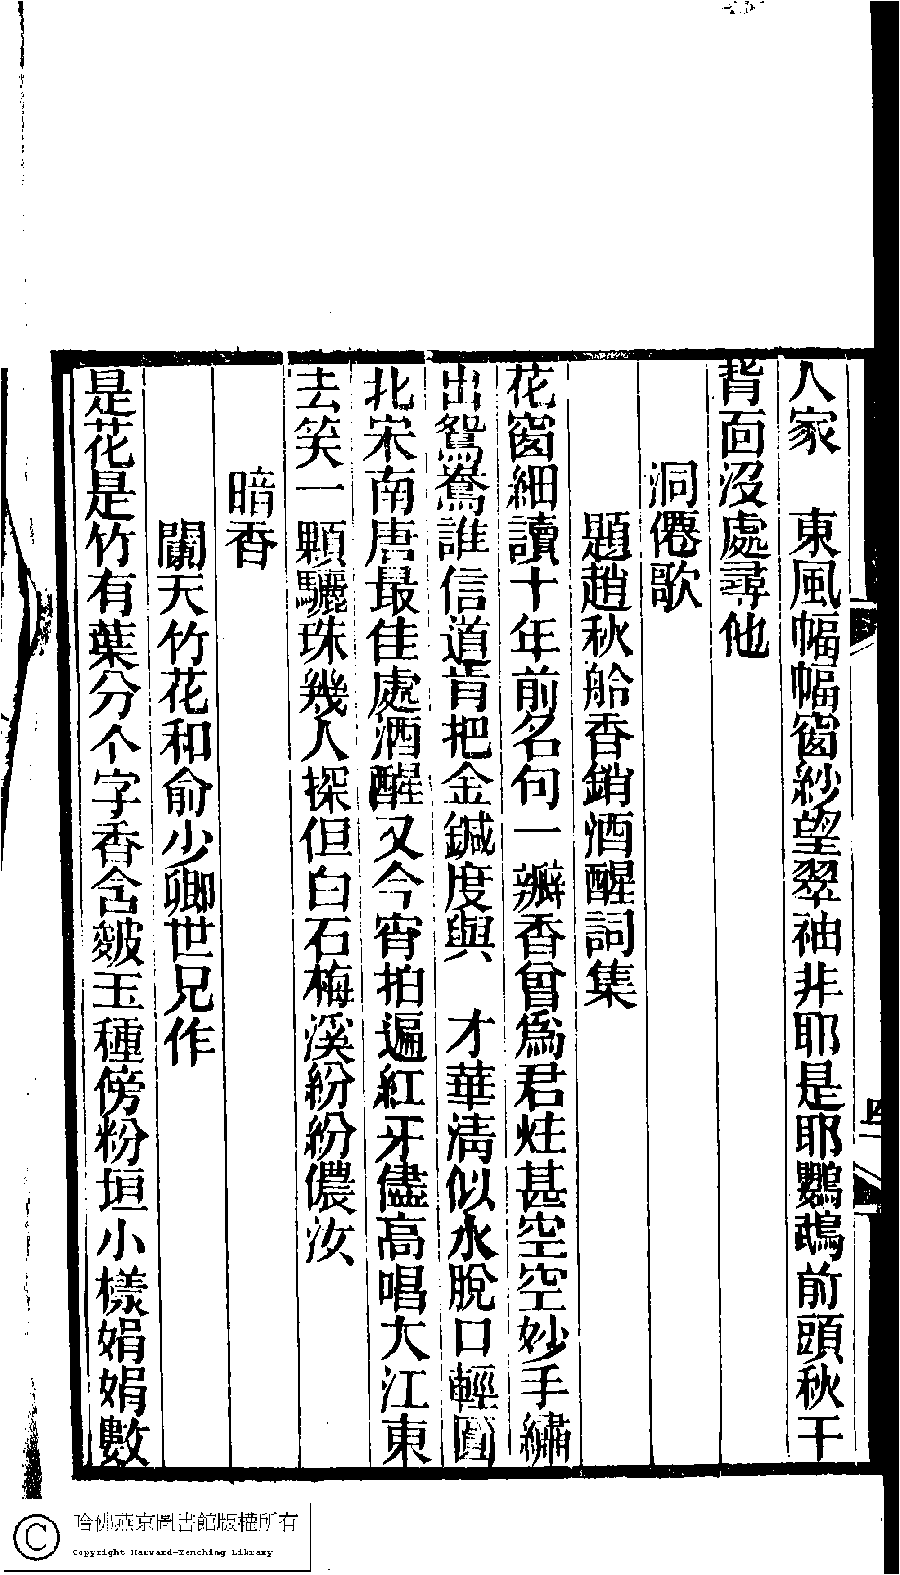 人家　東風幅幅窗紗望翠袖非耶是耶鸚鵡前頭秋千
背面沒處尋他
洞僊歌
題趙秋舲香銷酒醒詞集
花窗細讀十年前名句一瓣香曾爲君炷甚空空妙手繡
出鴛鴦誰信道肯把金鍼度與　才華清似水脫口輕圓
北宋南唐最佳處酒醒又今宵拍遍紅牙儘高唱大江東
去笑一顆驪珠幾人探但白石梅溪紛紛儂汝
暗香
闌天竹花和俞少卿世兄作
是花是竹有葉分个字香含皴玉種傍粉垣小樣娟娟數
哈佛燕京圖書館版權所有
Copyright Harvard-Yenching Library